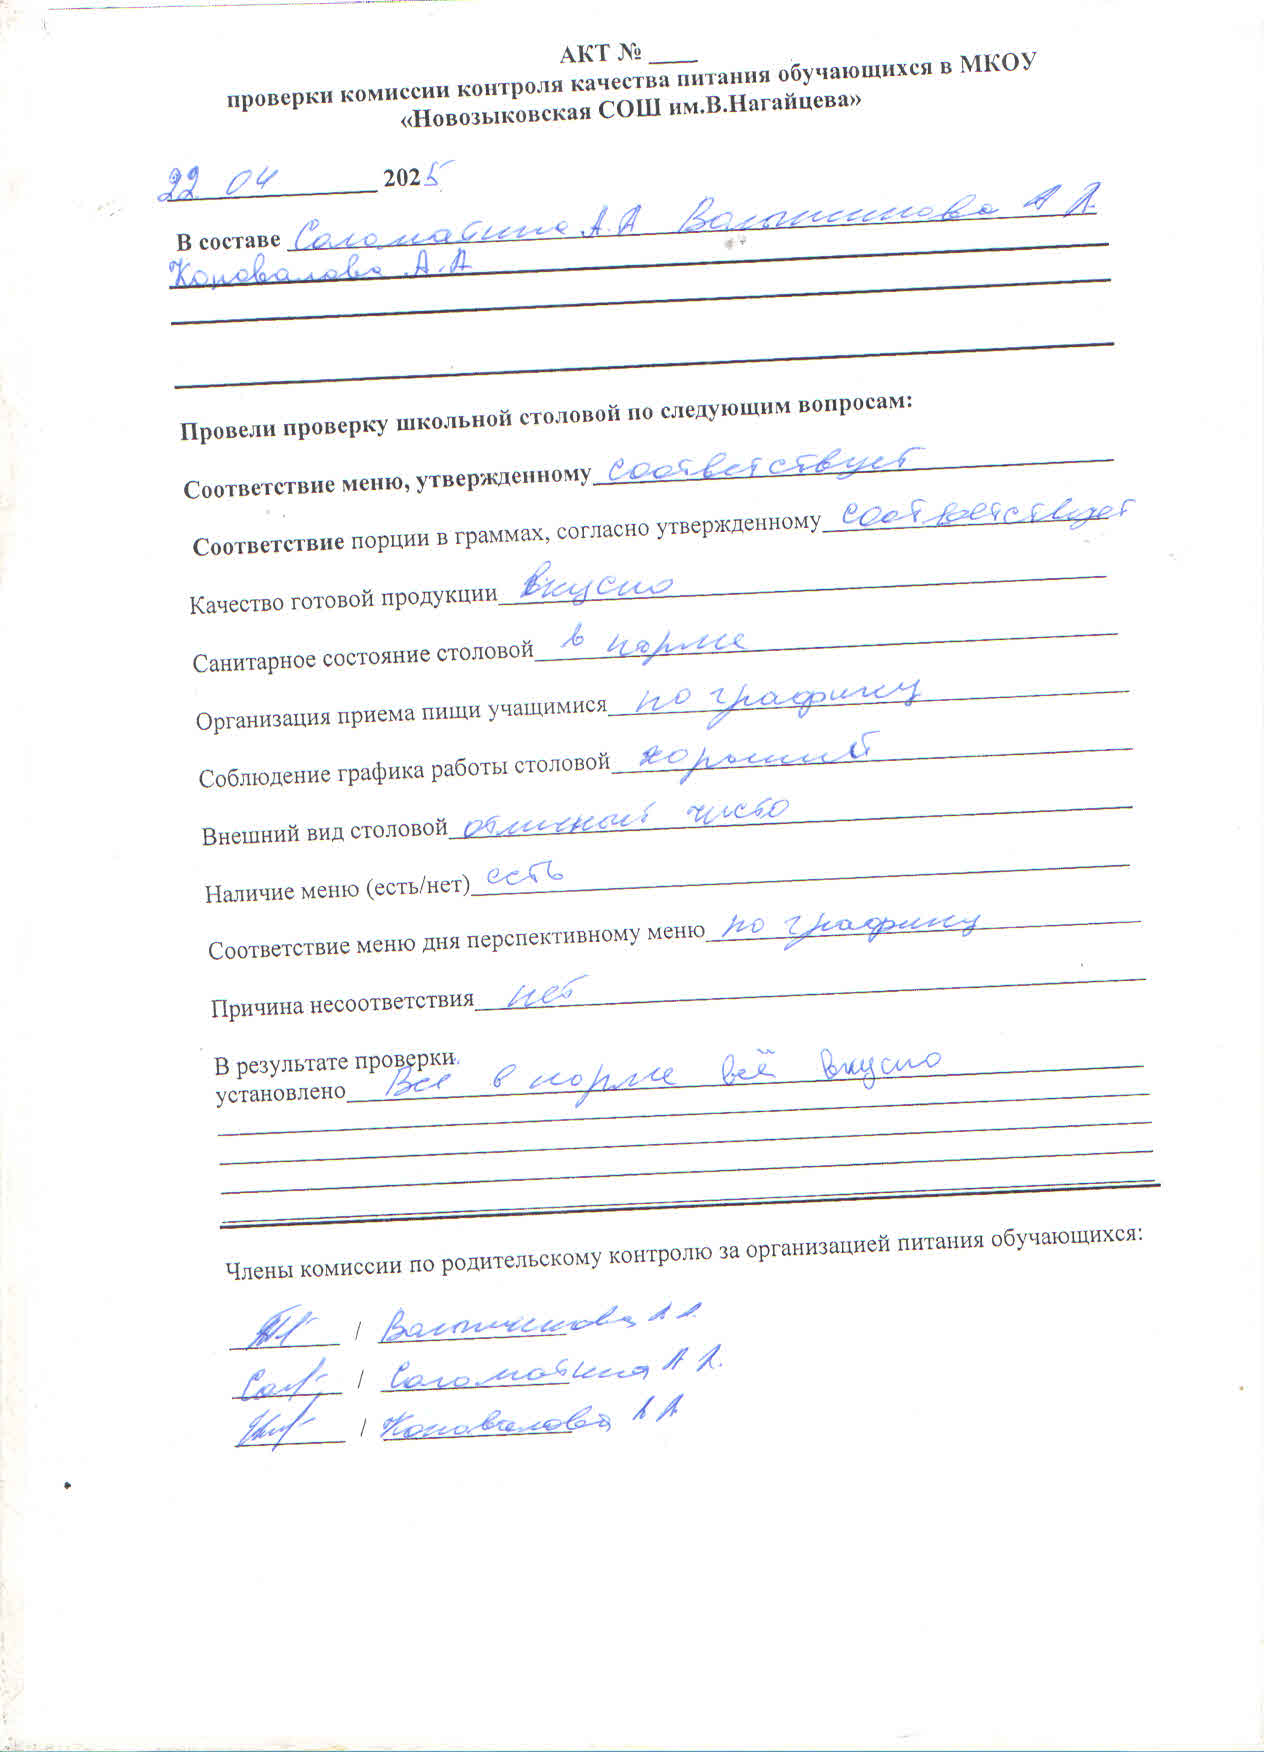 АКТ № ____
проверки комиссии контроля качества питания обучающихся в МКОУ
«Новозыковская СОШ им.В.Нагайцева»
22 04 2025
В составе Соломатина А.А
Коновалова А.А
Провели проверку школьной столовой по следующим вопросам:
Соответствие меню, утвержденному соответствует
Соответствие порции в граммах, согласно утвержденному соответствует
Качество готовой продукции вкусно
Санитарное состояние столовой в норме
Организация приема пищи учащимися по графику
Соблюдение графика работы столовой хороший
Внешний вид столовой отличный чисто
Наличие меню (есть/нет) есть
Соответствие меню дня перспективному меню по графику
Причина несоответствия нет
В результате проверки
установлено Все в норме всё вкусно
Члены комиссии по родительскому контролю за организацией питания обучающихся:
/
/ Соломатина А
/ Коновалова А А